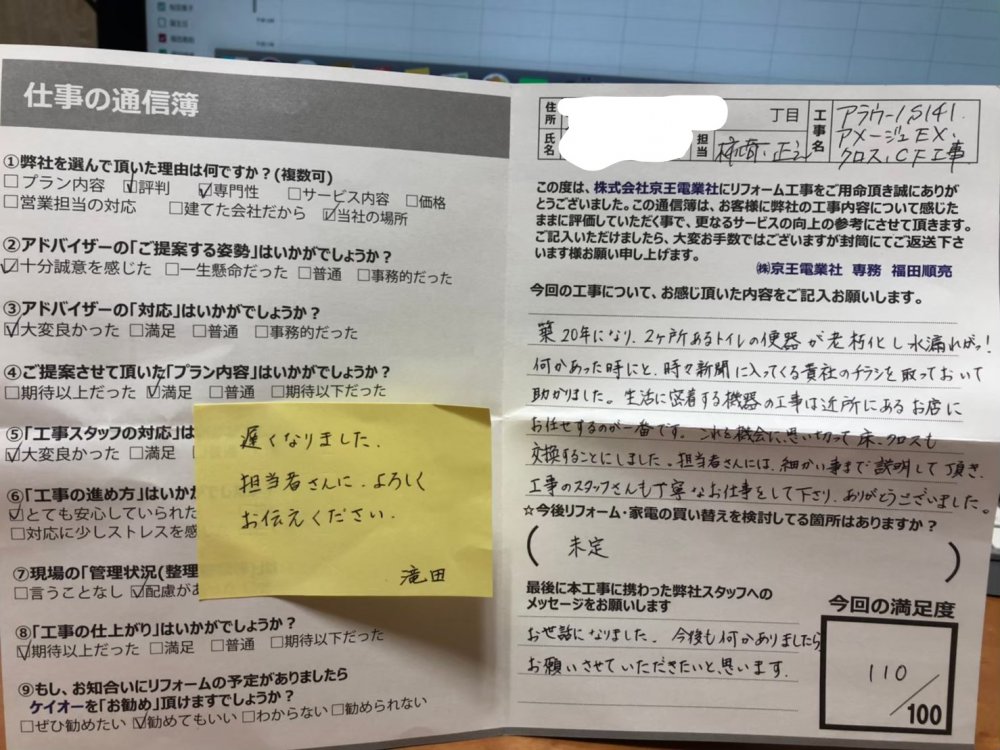 仕事の通信簿
①弊社を選んで頂いた理由は何ですか？(複数可)
□プラン内容 ☑評判 ☑専門性 □サービス内容 □価格
□営業担当の対応 □建てた会社だから ☑当社の場所
②アドバイザーの「ご提案する姿勢」はいかがでしょうか？
☑十分誠意を感じた □一生懸命だった □普通 □事務的だった
③アドバイザーの「対応」はいかがでしょうか？
☑大変良かった □満足 □普通 □事務的だった
④ご提案させて頂いた「プラン内容」はいかがでしょうか？
□期待以上だった ☑満足 □普通 □期待以下だった
⑤「工事スタッフの対応」は
☑大変良かった □満足
⑥「工事の進め方」はいかが
☑とても安心していられた
□対応に少しストレスを感
⑦現場の「管理状況(整理
□言うことなし ☑配慮が
⑧「工事の仕上がり」はいかがでしょうか？
☑期待以上だった □満足 □普通 □期待以下だった
⑨もし、お知合いにリフォームの予定がありましたら
ケイオーを「お勧め」頂けますでしょうか？
□ぜひ勧めたい ☑勧めてもいい □わからない □勧められない
遅くなりました.
担当者さんに.よろしく
お伝えください.
滝田
住所 丁目
氏名 担当
工事名
アラウーノS141.
アメージュEX、
クロス、CF工事
この度は、株式会社京王電業社にリフォーム工事をご用命頂き誠にありが
とうございました。この通信簿は、お客様に弊社の工事内容について感じた
ままに評価していただく事で、更なるサービスの向上の参考にさせて頂きます。
ご記入いただけましたら、大変お手数ではございますが封筒にてご返送下さ
います様お願い申し上げます。
㈱京王電業社 専務 福田順亮
今回の工事について、お感じ頂いた内容をご記入お願いします。
築20年になり、2ヶ所あるトイレの便器が老朽化し水漏れがっ!
何かあった時にと、時々新聞に入ってくる貴社のチラシを取っておいて
助かりました。生活に密着する機器の工事は近所にあるお店に
お任せするのが一番です。これを機会に思い切って床、クロスも
交換することにしました。担当者さんには、細かい事まで説明して頂き、
工事のスタッフさんも丁寧なお仕事をして下さり、ありがとうございました。
☆今後リフォーム・家電の買い替えを検討してる箇所はありますか？
(未定)
最後に本工事に携わった弊社スタッフへの
メッセージをお願いします
お世話になりました. 今後も何かありましたら
お願いさせていただきたいと思います.
今回の満足度
110/100